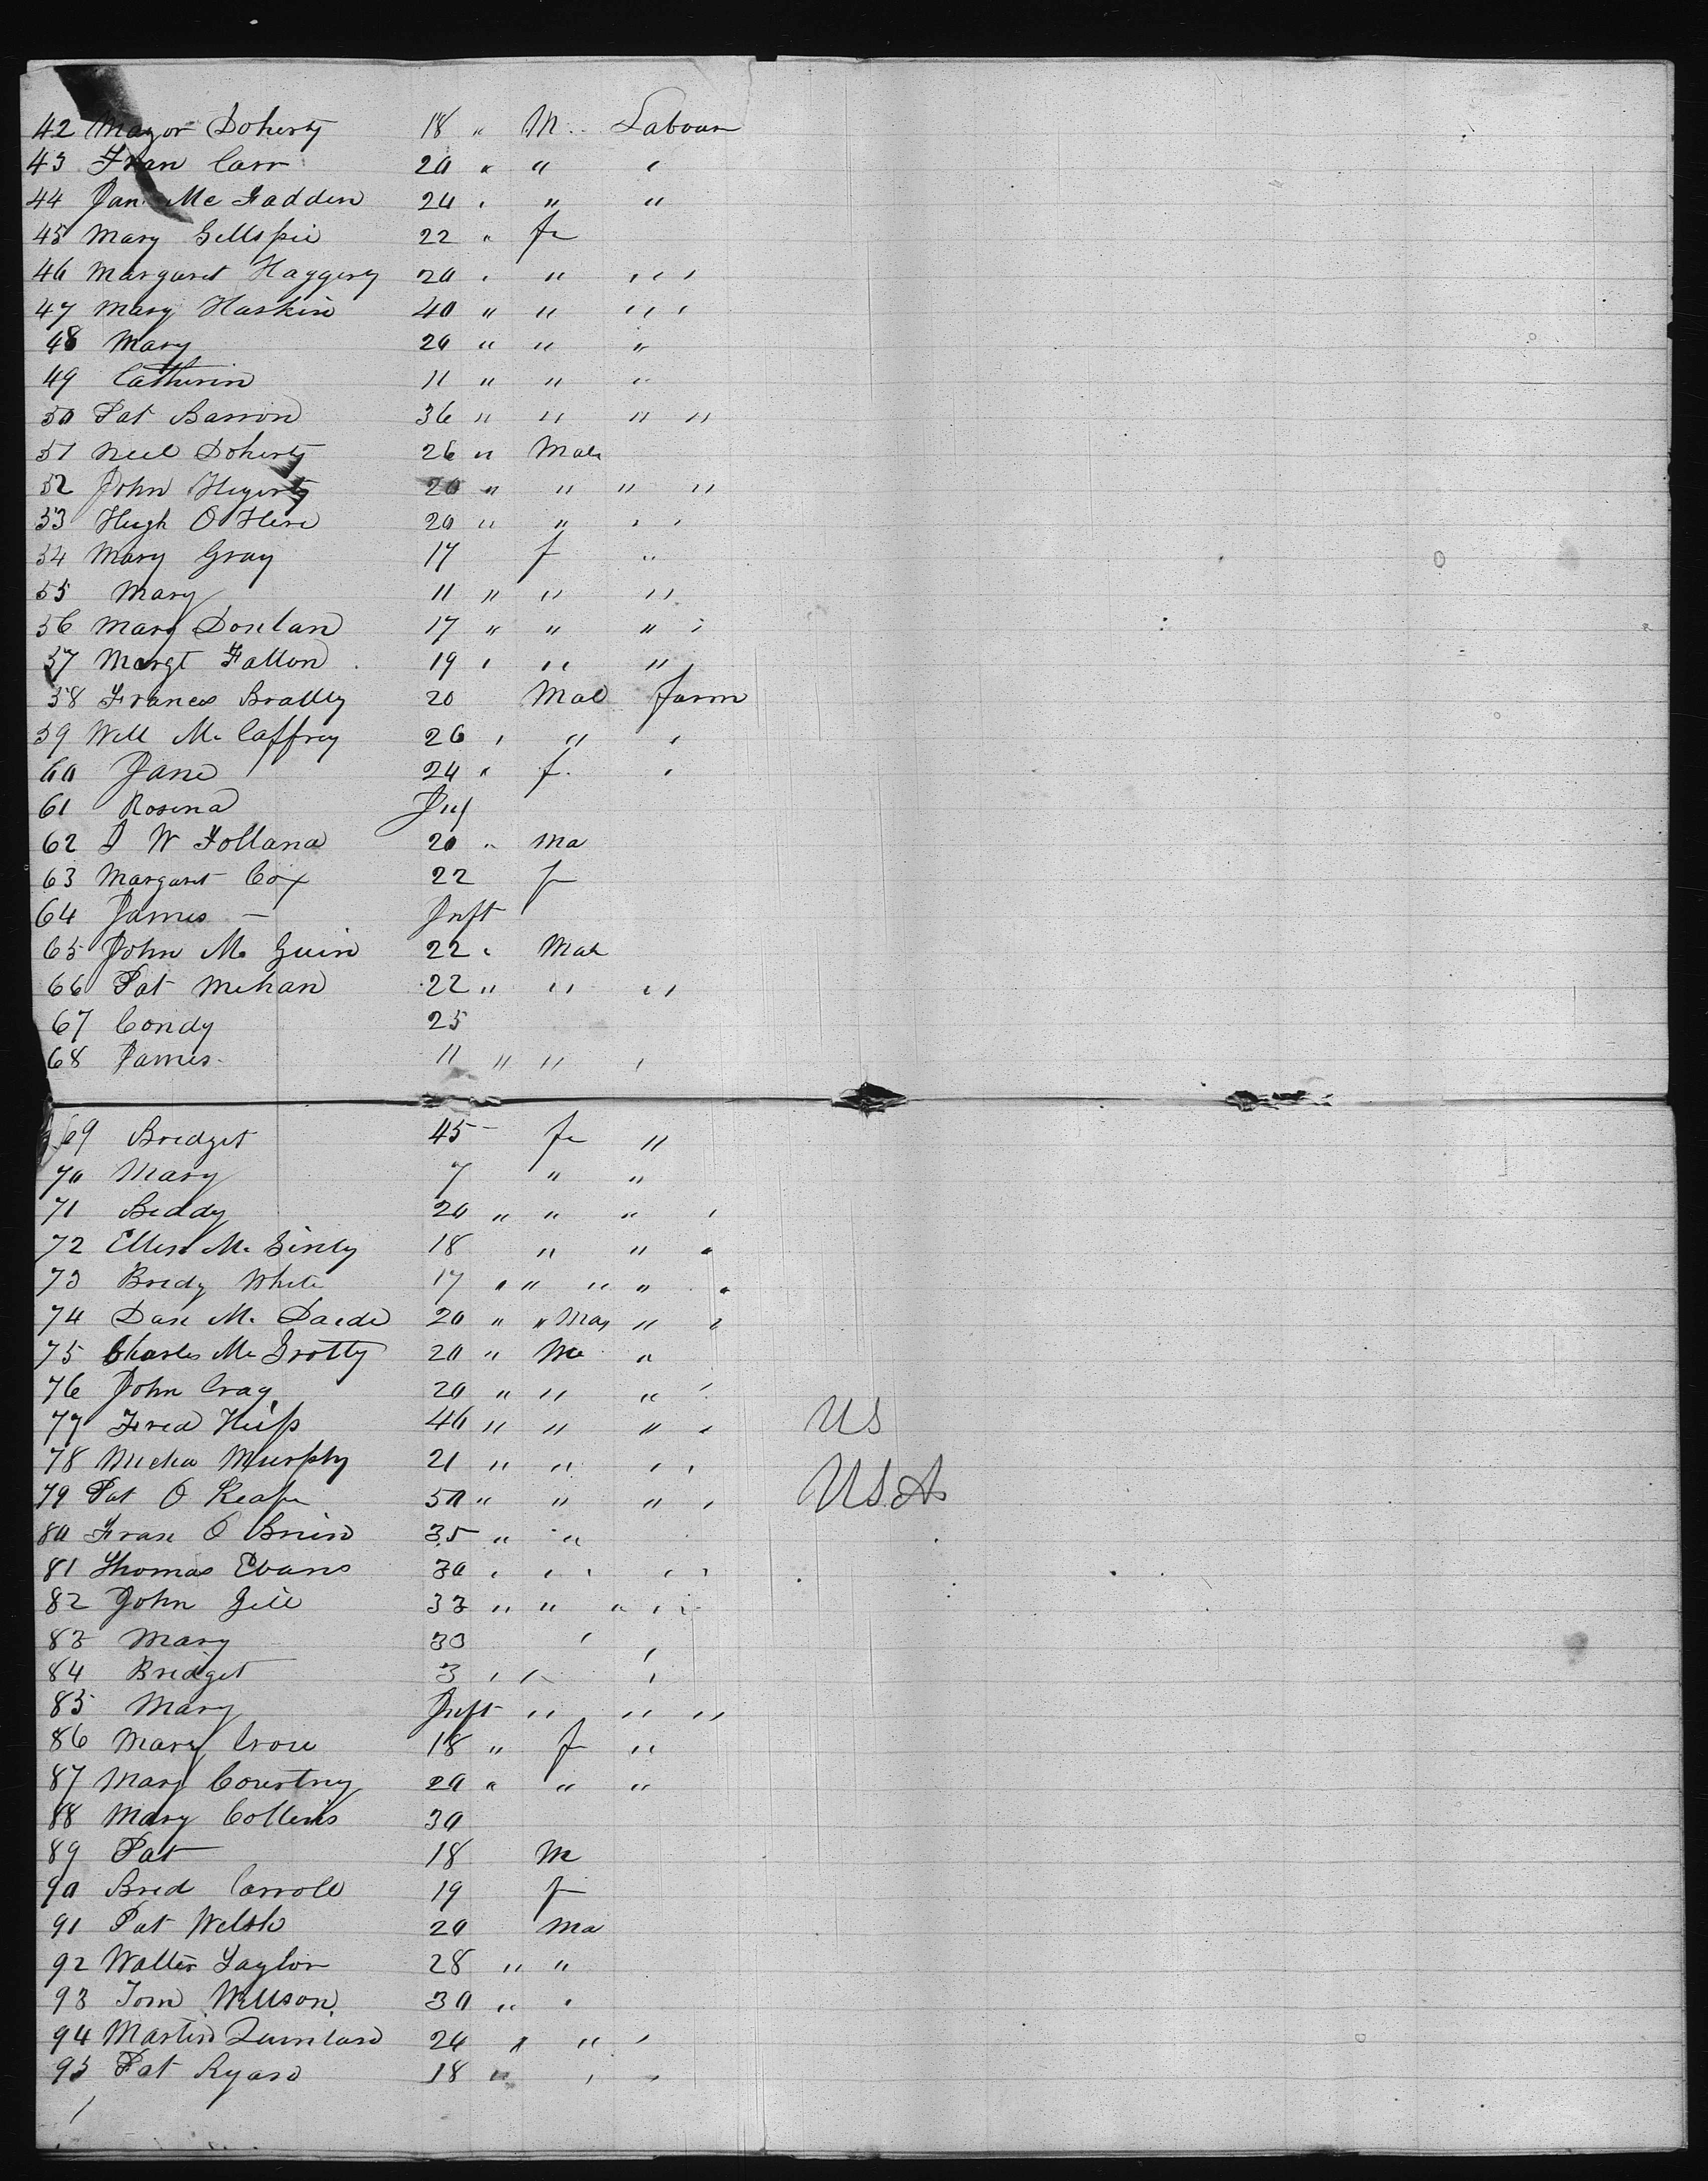 42 Mayor Doherty 18 " M " Labour
43 Fran Carr 20 " " "
44 Jan Mc Fadden 24 " " "
45 Mary Gellspie 22 " fe
46 Margaret Haggery 20 " " " "
47 Mary Haskin 40 " " " "
48 Mary 20 " " "
49 Catherin 11 " " "
50 Pat Barron 36 " " " "
51 Neil Doherty 26 " Male
52 John Hegerty 20 " " " "
53 Hugh O Here 20 " " " "
54 Mary Gray 17 f "
55 Mary 11 " " "
56 Mary Donlan 17 " " " "
57 Margt Fallon 19 " " "
58 Frances Bradley 20 Mal Farm
59 Will Mc Caffrey 26 " " "
60 Jane 24 " f. "
61 Rosena Inf
62 J W Follana 20 " Ma
63 Margaret Cox 22 f
64 James — Inft
65 John Mc Guin 22 " Mal
66 Pat Mehan 22 " " "
67 Condy 25
68 James 11 " " "
69 Bridget 45 — fe "
70 Mary 7 " "
71 Beddy 20 " " " "
72 Ellen Mc Ginly 18 " " "
73 Bredy White 17 " " " " "
74 Dan Mc Daide 20 " " Ma " "
75 Charles Mc Grotty 20 " Me "
76 John Crag 20 " " " "
77 Fred Heifs 46 " " " " US
78 Micha Murphy 21 " " " "
79 Pat O Keafe 50 " " " " USA
80 Fran O Brien 35 " "
81 Thomas Evans 30 " " " " "
82 John Gill 33 " " " " "
83 Mary 30 " "
84 Bridget 3 " " "
85 Mary Inft " " "
86 Mary Crow 18 " f "
87 Mary Courtney 20 " " "
88 Mary Collens 30
89 Pat 18 M
90 Bred Carroll 19 f
91 Pat Welsh 20 Ma
92 Walter Taylor 28 " "
93 Tom Willson 30 " "
94 Martin Quinlan 24 " " "
95 Pat Ryan 18 " " "